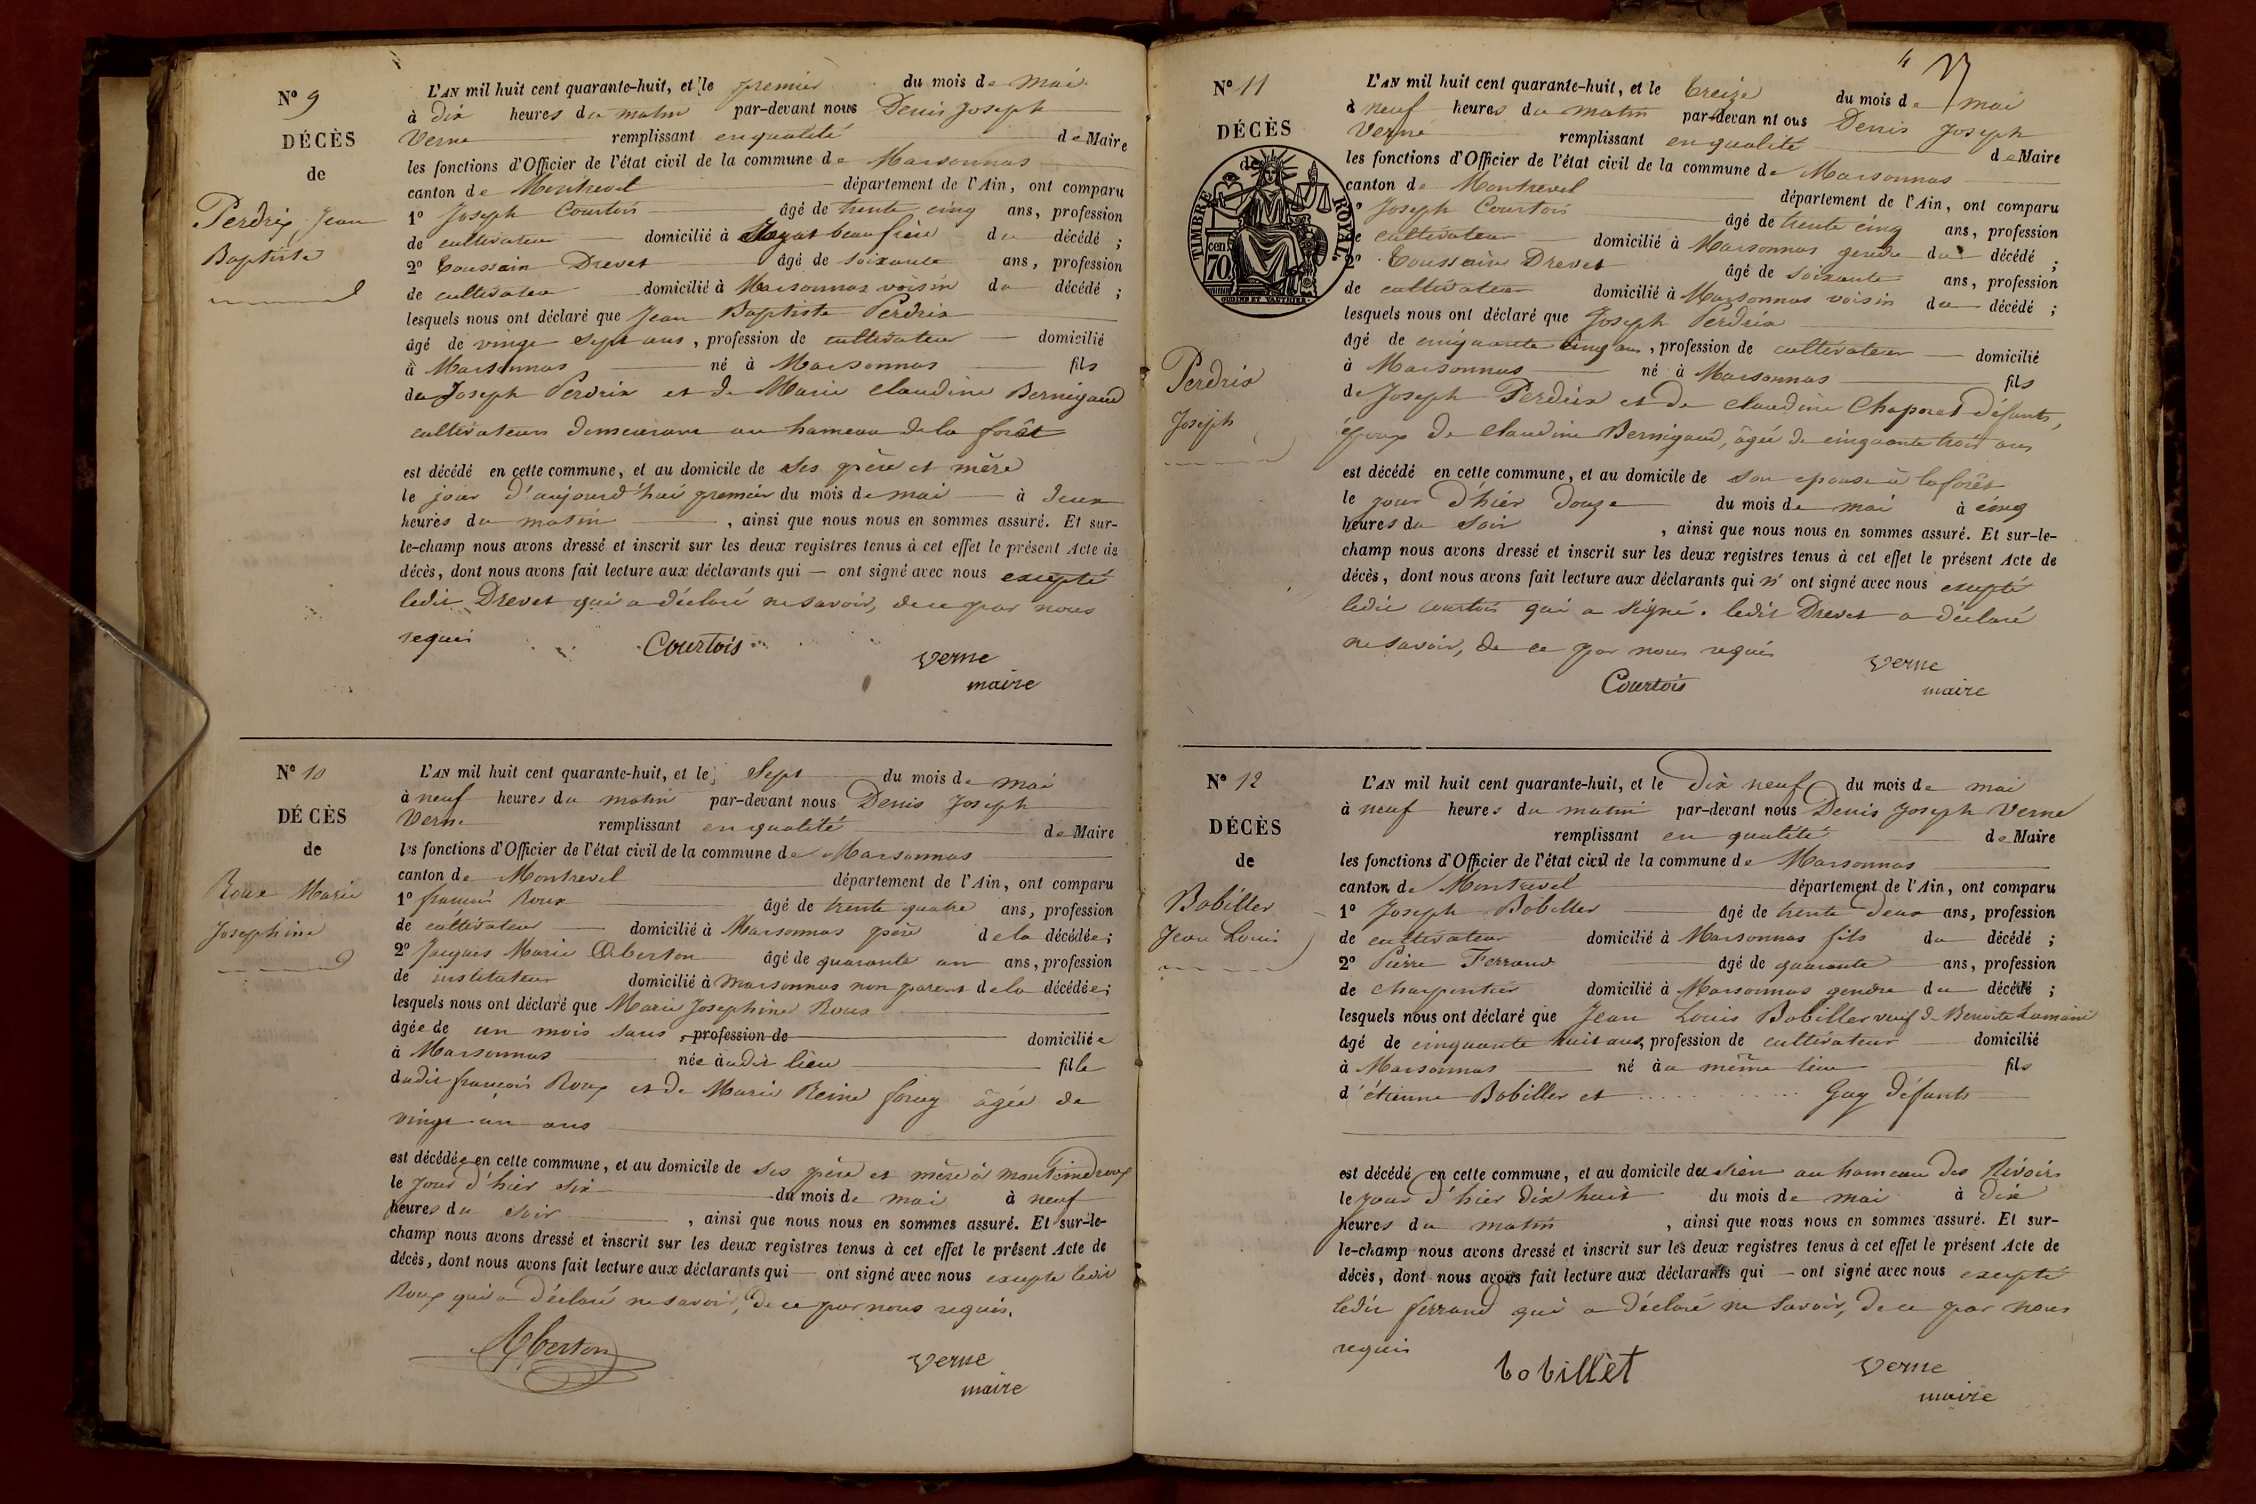 N° 9
DÉCÈS
de
Perdrix Jean
Baptiste
L'AN mil huit cent quarante-huit, et le premier du mois de mai
à dix heures du matin par-devant nous Denis Joseph
Verne remplissant en qualité de Maire
les fonctions d'Officier de l'état civil de la commune de Marsonnas
canton de Montrevel département de l'Ain, ont comparu
1° Joseph Courtois âgé de trente cinq ans, profession
de cultivateur domicilié à beau frère du décédé ;
2° Toussain Drevet âgé de soixante ans, profession
de cultivateur domicilié à Marsonnas voisin du décédé ;
lesquels nous ont déclaré que Jean Baptiste Perdrix
âgé de vingt sept ans, profession de cultivateur domicilié
à Marsonnas né à Marsonnas fils
de Joseph Perdrix et de Marie Claudine Bernigaud
cultivateurs demeurant au hameau de la forêt
est décédé en cette commune, et au domicile de ses père et mère
le jour d'aujourd'hui premier du mois de mai à deux
heures du matin, ainsi que nous nous en sommes assuré. Et sur-
le-champ nous avons dressé et inscrit sur les deux registres tenus à cet effet le présent Acte de
décès, dont nous avons fait lecture aux déclarants qui — ont signé avec nous excepté
ledit Drevet qui a déclaré ne savoir, de ce par nous
requis
Courtois
Verne
maire
N° 10
DÉCÈS
de
Roux Marie
Josephine
L'AN mil huit cent quarante-huit, et le sept du mois de mai
à neuf heures du matin par-devant nous Denis Joseph
Verne remplissant en qualité de Maire
les fonctions d'Officier de l'état civil de la commune de Marsonnas
canton de Montrevel département de l'Ain, ont comparu
1° françois Roux âgé de trente quatre ans, profession
de cultivateur domicilié à Marsonnas père de la décédée;
2° Jacques Marie Oberton âgé de quarante un ans, profession
de instituteur domicilié à Marsonnas non parent de la décédée;
lesquels nous ont déclaré que Marie Josephine Roux
âgée de un mois sans, profession de domiciliée
à Marsonnas née audit lieu fille
dudit françois Roux et de Marie Reine âgée de
vingt un ans
est décédée en cette commune, et au domicile de ses père et mère à
le jour d'hier six du mois de mai à neuf
heures du soir, ainsi que nous nous en sommes assuré. Et sur-le-
champ nous avons dressé et inscrit sur les deux registres tenus à cet effet le présent Acte de
décès, dont nous avons fait lecture aux déclarants qui — ont signé avec nous excepté ledit
Roux qui a déclaré ne savoir, de ce par nous requis.
Oberton
Verne
maire
N° 11
DÉCÈS
de
TIMBRE ROYAL
cen. 70
OUDINE ET VAUTHIER
Perdrix
Joseph
L'AN mil huit cent quarante-huit, et le treize du mois de mai
à neuf heures du matin par-devan nt ous Denis Joseph
Verne remplissant en qualité de Maire
les fonctions d'Officier de l'état civil de la commune de Marsonnas
canton de Montrevel département de l'Ain, ont comparu
1° Joseph Courtois âgé de trente cinq ans, profession
de cultivateur domicilié à Marsonnas gendre du décédé ;
2° Toussain Drevet âgé de soixante ans, profession
de cultivateur domicilié à Marsonnas voisin du décédé ;
lesquels nous ont déclaré que Joseph Perdrix
âgé de cinquante cinq ans, profession de cultivateur domicilié
à Marsonnas né à Marsonnas fils
de Joseph Perdrix et de Claudine Chaponet défunts,
époux de Claudine Bernigaud, âgée de cinquante trois ans
est décédé en cette commune, et au domicile de son épouse à la forêt
le jour d'hier douze du mois de mai à cinq
heures du soir, ainsi que nous nous en sommes assuré. Et sur-le-
champ nous avons dressé et inscrit sur les deux registres tenus à cet effet le présent Acte de
décès, dont nous avons fait lecture aux déclarants qui n' ont signé avec nous excepté
ledit Courtois qui a signé. ledit Drevet a déclaré
ne savoir, de ce par nous requis
Courtois
Verne
maire
N° 12
DÉCÈS
de
Bobiller
Jean Louis
L'AN mil huit cent quarante-huit, et le dix neuf du mois de mai
à neuf heures du matin par-devant nous Denis Joseph Verne
remplissant en qualité de Maire
les fonctions d'Officier de l'état civil de la commune de Marsonnas
canton de Montrevel département de l'Ain, ont comparu
1° Joseph Bobiller âgé de trente deux ans, profession
de cultivateur domicilié à Marsonnas fils du décédé ;
2° Pierre Ferrand âgé de quarante ans, profession
de charpentier domicilié à Marsonnas gendre du décédé ;
lesquels nous ont déclaré que Jean Louis Bobiller veuf de Benoite
âgé de cinquante huit ans, profession de cultivateur domicilié
à Marsonnas né au même lieu fils
d'étienne Bobiller et ........... Gay défunts
est décédé en cette commune, et au domicile du sien au hameau des Rivoirs
le jour d'hier dix huit du mois de mai à dix
heures du matin, ainsi que nous nous en sommes assuré. Et sur-
le-champ nous avons dressé et inscrit sur les deux registres tenus à cet effet le présent Acte de
décès, dont nous avons fait lecture aux déclarants qui — ont signé avec nous excepté
ledit ferrand qui a déclaré ne savoir, de ce par nous
requis
bobillet
Verne
maire